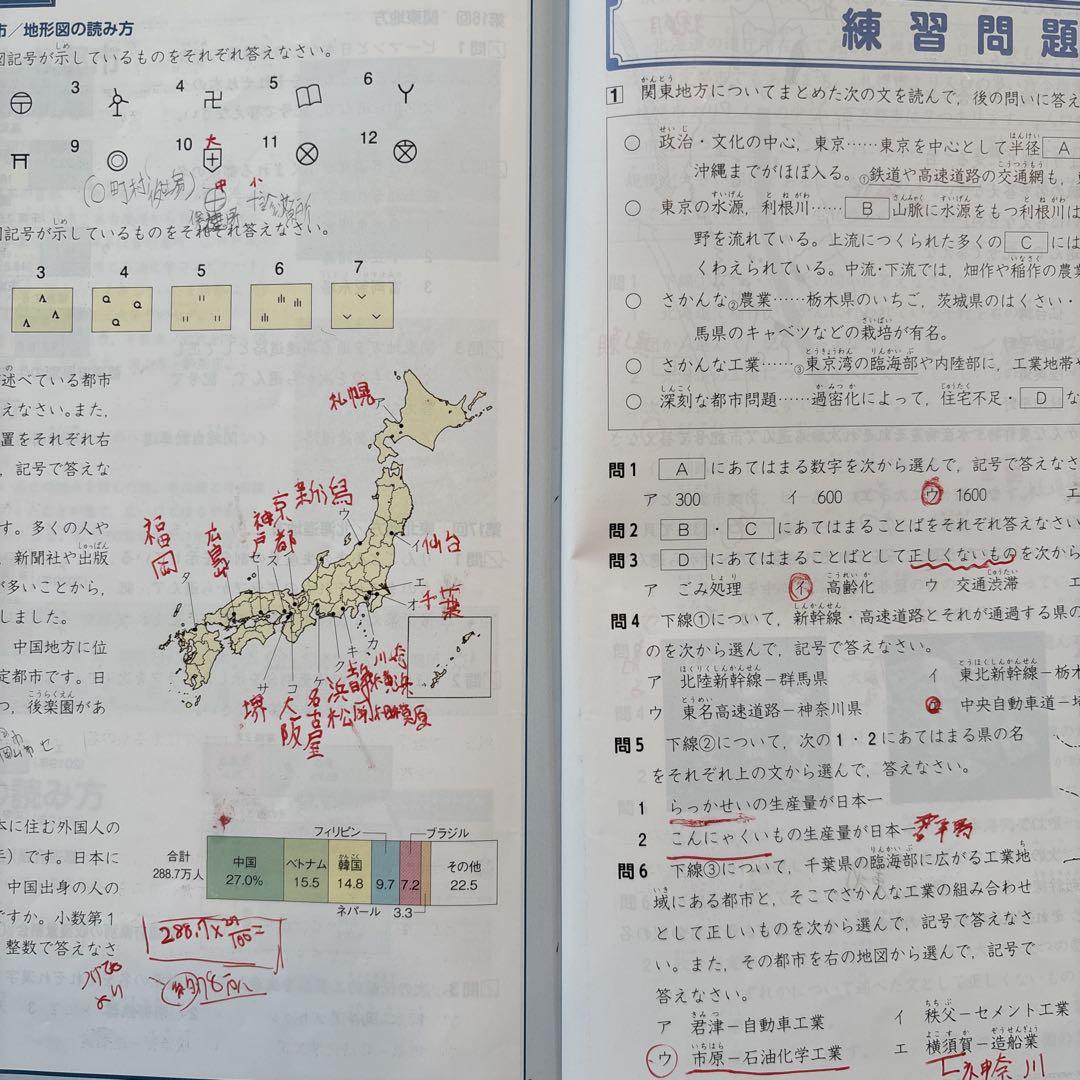 市/地形図の読み方
図記号が示しているものをそれぞれ答えなさい。
3 4 5 6
9 10 11 12
大
(◎町村役場)
中 小
保健所
診療所
図記号が示しているものをそれぞれ答えなさい。
3 4 5 6 7
述べている都市
えなさい。また,
置をそれぞれ右
, 記号で答えな
す。多くの人や
, 新聞社や出版
が多いことから,
しました。
中国地方に位
定都市です。日
つ, 後楽園があ
岡山市 セ
札幌
ア
新潟
ウ
京都
ス
神戸
セ
広島
福岡
タ
イ
仙台
エ
オ
千葉
カ
キ
ク
ケ
コ
サ
川崎
横浜
相模原
静岡
浜松
名古屋
大阪
堺
本に住む外国人の
年)です。日本に
中国出身の人の
ですか。小数第1
整数で答えなさ
フィリピン
ブラジル
合計
288.7万人
中国
27.0%
ベトナム
15.5
韓国
14.8
9.7
7.2
その他
22.5
ネパール
3.3
288.7×27/100=
約78万人
練習問題
1 関東地方についてまとめた次の文を読んで, 後の問いに答え
○ 政治・文化の中心, 東京……東京を中心として半径 A
沖縄までがほぼ入る。①鉄道や高速道路の交通網も,
○ 東京の水源, 利根川…… B 山脈に水源をもつ利根川は
野を流れている。上流につくられた多くの C には
くわえられている。中流・下流では, 畑作や稲作の農業
○ さかんな②農業……栃木県のいちご, 茨城県のはくさい・
馬県のキャベツなどの栽培が有名。
○ さかんな工業……③東京湾の臨海部や内陸部に, 工業地帯や
○ 深刻な都市問題……過密化によって, 住宅不足・ D な
問1 A にあてはまる数字を次から選んで, 記号で答えなさ
ア 300 イ 600 ウ 1600 エ
問2 B ・ C にあてはまることばをそれぞれ答えなさい
問3 D にあてはまることばとして正しくないものを次から
ア ごみ処理 イ 高齢化 ウ 交通渋滞 エ
問4 下線①について, 新幹線・高速道路とそれが通過する県の
のを次から選んで, 記号で答えなさい。
ア 北陸新幹線－群馬県 イ 東北新幹線－栃木
ウ 東名高速道路－神奈川県 エ 中央自動車道－
問5 下線②について, 次の1・2にあてはまる県の名
をそれぞれ上の文から選んで, 答えなさい。
1 らっかせいの生産量が日本一
2 こんにゃくいもの生産量が日本一 群馬
問6 下線③について, 千葉県の臨海部に広がる工業地
域にある都市と, そこでさかんな工業の組み合わせ
として正しいものを次から選んで, 記号で答えなさ
い。また, その都市を右の地図から選んで, 記号で
答えなさい。
ア 君津－自動車工業 イ 秩父－セメント工業
ウ 市原－石油化学工業 エ 横須賀－造船業
神奈川